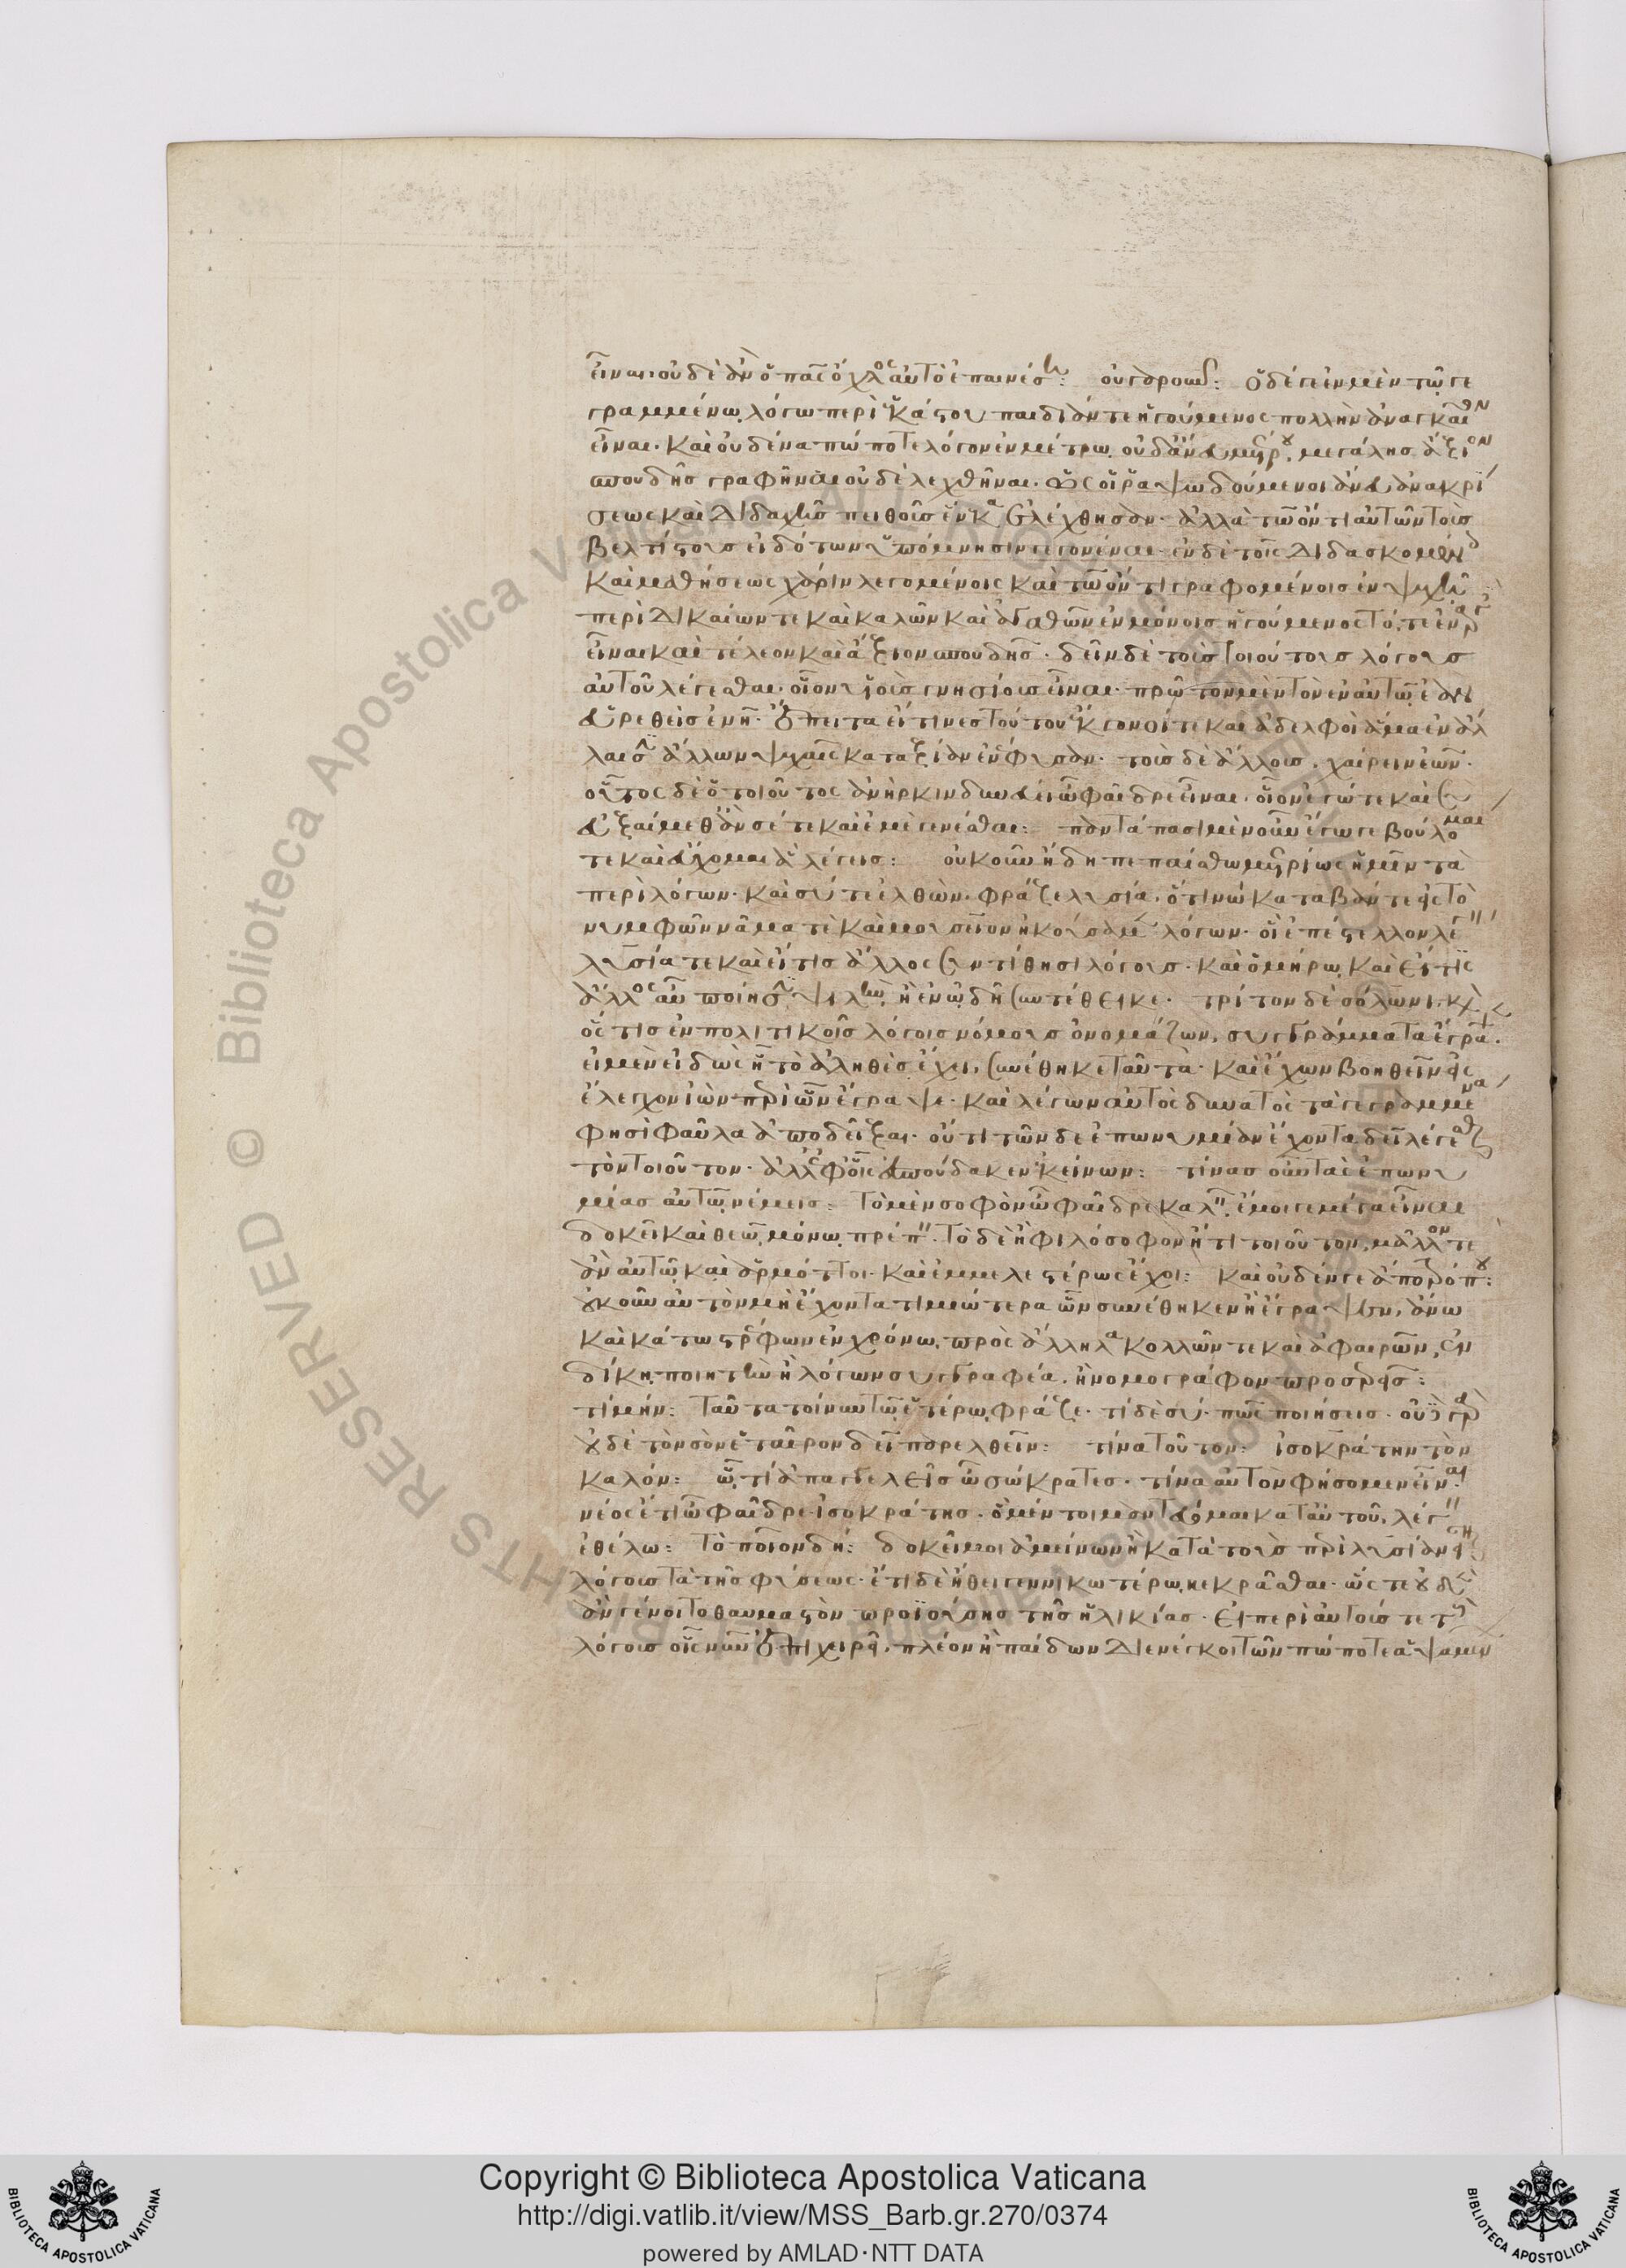 εἶναι· οὐδὲ ἂν ὁ πᾶς ὄχλος αὐτὸ ἐπαινέσῃ: οὐ γὰρ οὖν: ὁ δέ γε ἐν μὲν τῷ γε
γραμμένῳ λόγῳ περὶ ἑκάστου παιδιάν τε ἡγούμενος πολλὴν ἀναγκαῖον
εἶναι· καὶ οὐδένα πώποτε λόγον ἐν μέτρῳ οὐδ' ἄνευ μέτρου μεγάλης ἄξιον
σπουδῆς γραφῆναι οὐδὲ λεχθῆναι· ὡς οἱ ῥαψωδούμενοι ἄνευ ἀνακρί
σεως καὶ διδαχῆς πειθοῦς ἕνεκα ἐλέχθησαν· ἀλλὰ τῶ ὄντι αὐτῶν τοὺς
βελτίστους εἰδότων ὑπόμνησιν γεγονέναι· ἐν δὲ τοῖς διδασκομένοις
καὶ μαθήσεως χάριν λεγομένοις καὶ τῶ ὄντι γραφομένοις ἐν ψυχῇ
περὶ δικαίων τε καὶ καλῶν καὶ ἀγαθῶν ἐν μόνοις ἡγούμενος τό, τε ἐναργὲς
εἶναι καὶ τέλεον καὶ ἄξιον σπουδῆς· δεῖν δὲ τοὺς τοιούτους λόγους
αὑτοῦ λέγεσθαι· οἷον υἱεῖς γνησίους εἶναι· πρῶτον μὲν τὸν ἐν αὑτῷ ἐὰν
εὑρεθεὶς ἐνῇ· ἔπειτα εἴ τινες τούτου ἔκγονοί τε καὶ ἀδελφοὶ ἅμα ἐν ἄλ
λαις ἄλλων ψυχαῖς κατ' ἀξίαν ἐνέφυσαν· τοὺς δὲ ἄλλους, χαίρειν ἐῶν·
οὗτος δὲ ὁ τοιοῦτος ἀνὴρ κινδυνεύει ὦ φαῖδρε εἶναι, οἷον ἐγώ τε καὶ σὺ
εὐξαίμεθ' ἂν σέ τε καὶ ἐμὲ γενέσθαι: παντάπασι μὲν οὖν ἔγωγε βούλομαί
τε καὶ εὔχομαι ἃ λέγεις: οὐκοῦν ἤδη πεπαίσθω μετρίως ἡμῖν τὰ
περὶ λόγων· καὶ σύ τε ἐλθὼν, φράζε λυσίᾳ, ὅτι νὼ καταβάντε εἰς τὸ
νυμφῶν νᾶμά τε καὶ μουσεῖον ἠκούσαμεν λόγων· οἳ ἐπέστελλον λέγειν
λυσίᾳ τε καὶ εἴ τις ἄλλος συντίθησι λόγους· καὶ ὁμήρῳ, καὶ εἴ τις
ἄλλος αὖ ποίησιν ψιλὴν ἢ ἐν ᾠδῇ συντέθεικε· τρίτον δὲ σόλωνι, καὶ
ὅς τις ἐν πολιτικοῖς λόγοις νόμους ὀνομάζων, συγγράμματα ἔγραψεν·
εἰ μὲν εἰδὼς ᾗ τὸ ἀληθὲς ἔχει, συνέθηκε ταῦτα· καὶ ἔχων βοηθεῖν εἰς
ἔλεγχον ἰὼν περὶ ὧν ἔγραψε· καὶ λέγων αὐτὸς δυνατὸς τὰ γεγραμμένα
φησὶ φαῦλα ἀποδεῖξαι· οὔ τι τῶνδε ἐπωνυμίαν ἔχοντα δεῖ λέγεσθαι
τὸν τοιοῦτον· ἀλλ' ἐφ' οἷς ἐσπούδακεν ἐκείνων: τίνας οὖν τὰς ἐπωνυ
μίας αὐτῷ νέμεις: τὸ μὲν σοφὸν ὦ φαῖδρε καλεῖν, ἔμοιγε μέγα εἶναι
δοκεῖ καὶ θεῷ μόνῳ πρέπειν· τὸ δὲ ἢ φιλόσοφον ἤ τι τοιοῦτον, μᾶλλόν τε
ἂν αὐτῷ καὶ ἁρμόττοι· καὶ ἐμμελεστέρως ἔχοι: καὶ οὐδέν γε ἀπὸ τρόπου:
οὐκοῦν αὖ τὸν μὴ ἔχοντα τιμιώτερα ὧν συνέθηκεν ἢ ἔγραψεν, ἄνω
καὶ κάτω στρέφων ἐν χρόνῳ, πρὸς ἄλληλα κολλῶν τε καὶ ἀφαιρῶν, ἐν
δίκῃ ποιητὴν ἢ λόγων συγγραφέα, ἢ νομογράφον προσερεῖς:
τί μήν: ταῦτα τοίνυν τῷ ἑτέρῳ φράζε· τί δὲ σύ· πῶς ποιήσεις· οὐδὲ γὰρ
οὐδὲ τὸν σὸν ἑταῖρον δεῖ παρελθεῖν: τίνα τοῦτον: ἰσοκράτην τὸν
καλόν: ᾧ, τί ἀπαγγελεῖς ὦ σώκρατες· τίνα αὐτὸν φήσομεν εἶναι·
νέος ἔτι ὦ φαῖδρε ἰσοκράτης· ὃ μέν τοι μαντεύομαι κατ' αὐτοῦ, λέγειν
ἐθέλω: τὸ ποῖον δή: δοκεῖ μοι ἀμείνων ἢ κατὰ τοὺς περὶ λυσίαν εἶναι
λόγους τὰ τῆς φύσεως· ἔτι δὲ ἤθει γεννικωτέρῳ κεκρᾶσθαι· ὥς τε οὐδὲν
ἂν γένοιτο θαυμαστὸν προϊούσης τῆς ἡλικίας· εἰ περὶ αὐτούς τε τοὺς
λόγους οἷς νῦν ἐπιχειρεῖ, πλέον ἢ παίδων διενέγκοι τῶν πώποτε ἁψαμέν
Copyright © Biblioteca Apostolica Vaticana
http://digi.vatlib.it/view/MSS_Barb.gr.270/0374
powered by AMLAD·NTT DATA